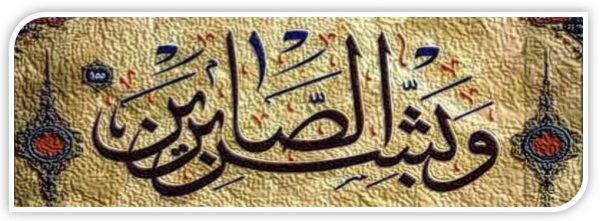 وَبَشِّرِ الصَّابِرِينَ ١٥٥